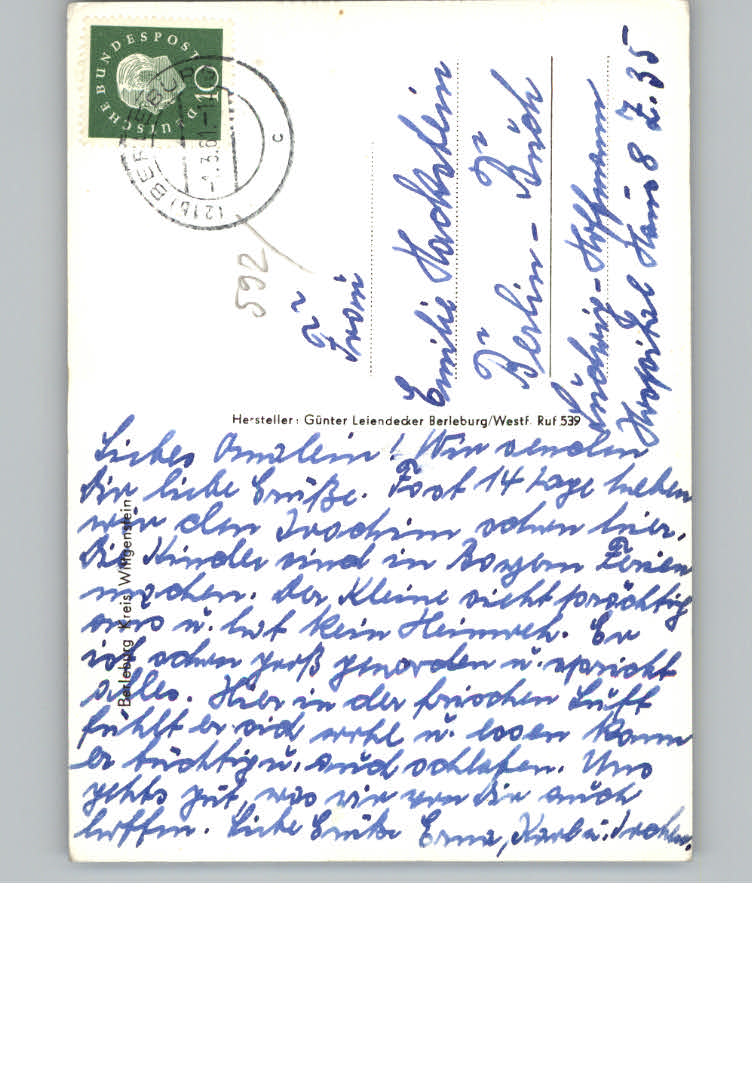 DEUTSCHE BUNDESPOST
10
(21b) BERLEBURG
-1.3.61-
c
592
Frau
Emilie Hackstein
Berlin-Buch
Ludwig-Hoffmann
Hospital Haus 8 Z. 35
Hersteller: Günter Leiendecker Berleburg/Westf. Ruf 539
Berleburg Kreis Wittgenstein
Liebes Omalein! Wir senden
Dir liebe Grüße. Fast 14 Tage haben
wir den Joachim schon hier.
Die Kinder sind in Bayern Ferien
machen. Der Kleine sieht prächtig
aus u. hat kein Heimweh. Er
ist schon groß geworden u. spricht
alles. Hier in der frischen Luft
fühlt er sich wohl u. essen kann
er tüchtig u. auch schlafen. Uns
gehts gut, was wir von Dir auch
hoffen. Liebe Grüße Erna, Karl u. Jochen.